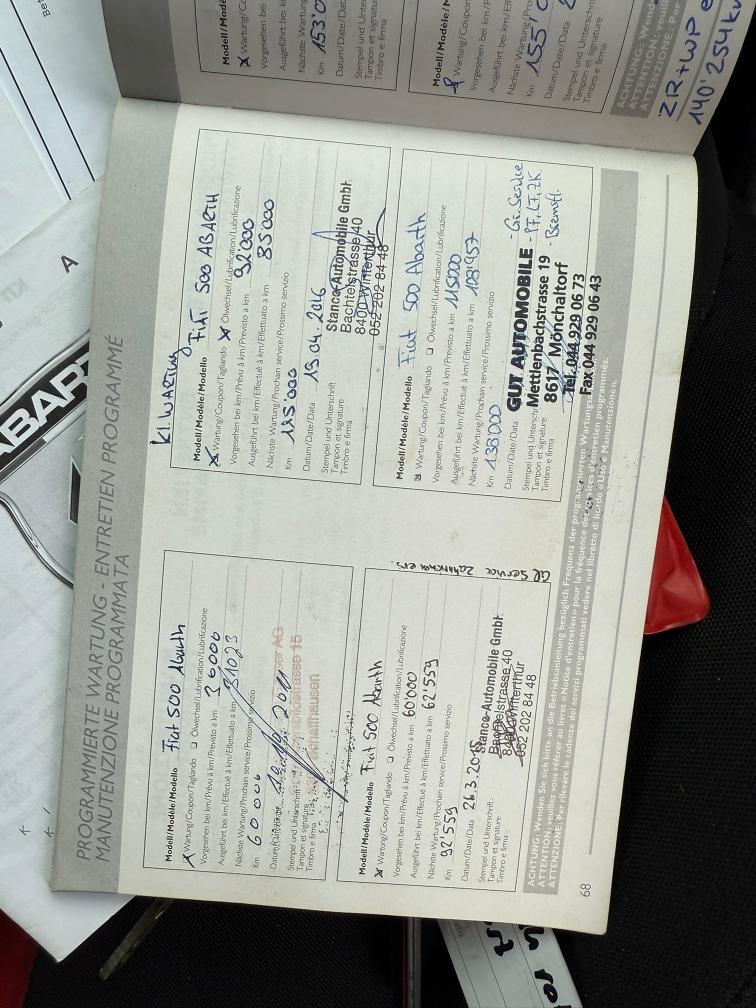 PROGRAMMIERTE WARTUNG - ENTRETIEN PROGRAMMÉ
MANUTENZIONE PROGRAMMATA
Modell/Modèle/Modello Fiat 500 Abarth
X Wartung/Coupon/Tagliando ❑ Ölwechsel/Lubrification/Lubrificazione
Vorgesehen bei km/Prévu à km/Previsto a km 30000
Ausgeführt bei km/Effectué à km/Effettuato a km 31023
Nächste Wartung/Prochain service/Prossimo servizio
Km 60 000
Datum/Date/Data
Stempel und Unterschrift
Tampon et signature
Timbro e firma
AG
strasse 15
Schaffhausen
Modell/Modèle/Modello Fiat 500 Abarth
X Wartung/Coupon/Tagliando ❑ Ölwechsel/Lubrification/Lubrificazione
Vorgesehen bei km/Prévu à km/Previsto a km 60'000
Ausgeführt bei km/Effectué à km/Effettuato a km 62'559
Nächste Wartung/Prochain service/Prossimo servizio
Km 92'559
Datum/Date/Data 26.3.2015
Stempel und Unterschrift
Tampon et signature
Timbro e firma
Stanca-Automobile GmbH
Bachtelstrasse 40
8400 Winterthur
052 202 84 48
Gr Service Zahnriemen ers.
Kl. WARTUNG
Modell/Modèle/Modello FIAT 500 ABARTH
X Wartung/Coupon/Tagliando X Ölwechsel/Lubrification/Lubrificazione
Vorgesehen bei km/Prévu à km/Previsto a km 92'000
Ausgeführt bei km/Effectué à km/Effettuato a km 85'000
Nächste Wartung/Prochain service/Prossimo servizio
Km 115'000
Datum/Date/Data 13.04.2016
Stempel und Unterschrift
Tampon et signature
Timbro e firma
Stanca-Automobile GmbH
Bachtelstrasse 40
8400 Winterthur
052 202 84 48
Modell/Modèle/Modello Fiat 500 Abarth
X Wartung/Coupon/Tagliando ❑ Ölwechsel/Lubrification/Lubrificazione
Vorgesehen bei km/Prévu à km/Previsto a km 115000
Ausgeführt bei km/Effectué à km/Effettuato a km 108'957
Nächste Wartung/Prochain service/Prossimo servizio
Km 138'000
Datum/Date/Data
Stempel und Unterschrift
Tampon et signature
Timbro e firma
GUT AUTOMOBILE
Mettlenbachstrasse 19
8617 Mönchaltorf
Tel. 044 929 06 73
Fax 044 929 06 43
- Gr. Service
- PF, LF, ZK
- Bremsfl.
ACHTUNG: Wenden Sie sich bitte an die Betriebsanleitung bezüglich Frequenz der programmierten Wartungen.
ATTENTION: veuillez vous référer au livret «Notice d'entretien» pour la fréquence des services d'entretien programmés.
ATTENZIONE: Per rilevare le cadenze dei servizi programmati vedere nel libretto di bordo «Uso e Manutenzione».
68
Modell/Modèle/
X Wartung/Co
Vorgesehen bei
Ausgeführt bei
Nächste Wartung
Km 153'0
Datum/Date/Data
Stempel und Unterschrift
Tampon et signature
Timbro e firma
Modell/Modèle/
Wartung/Coupon
Vorgesehen bei km
Ausgeführt bei km
Nächste Wartung/Pro
Km 155'0
Datum/Date/Data
Stempel und Unterschrift
Tampon et signature
Timbro e firma
ACHTUNG: Wende
ATTENTION: veuill
ATTENZIONE: Per
ZR + WP e
140'254 km
ABART
A